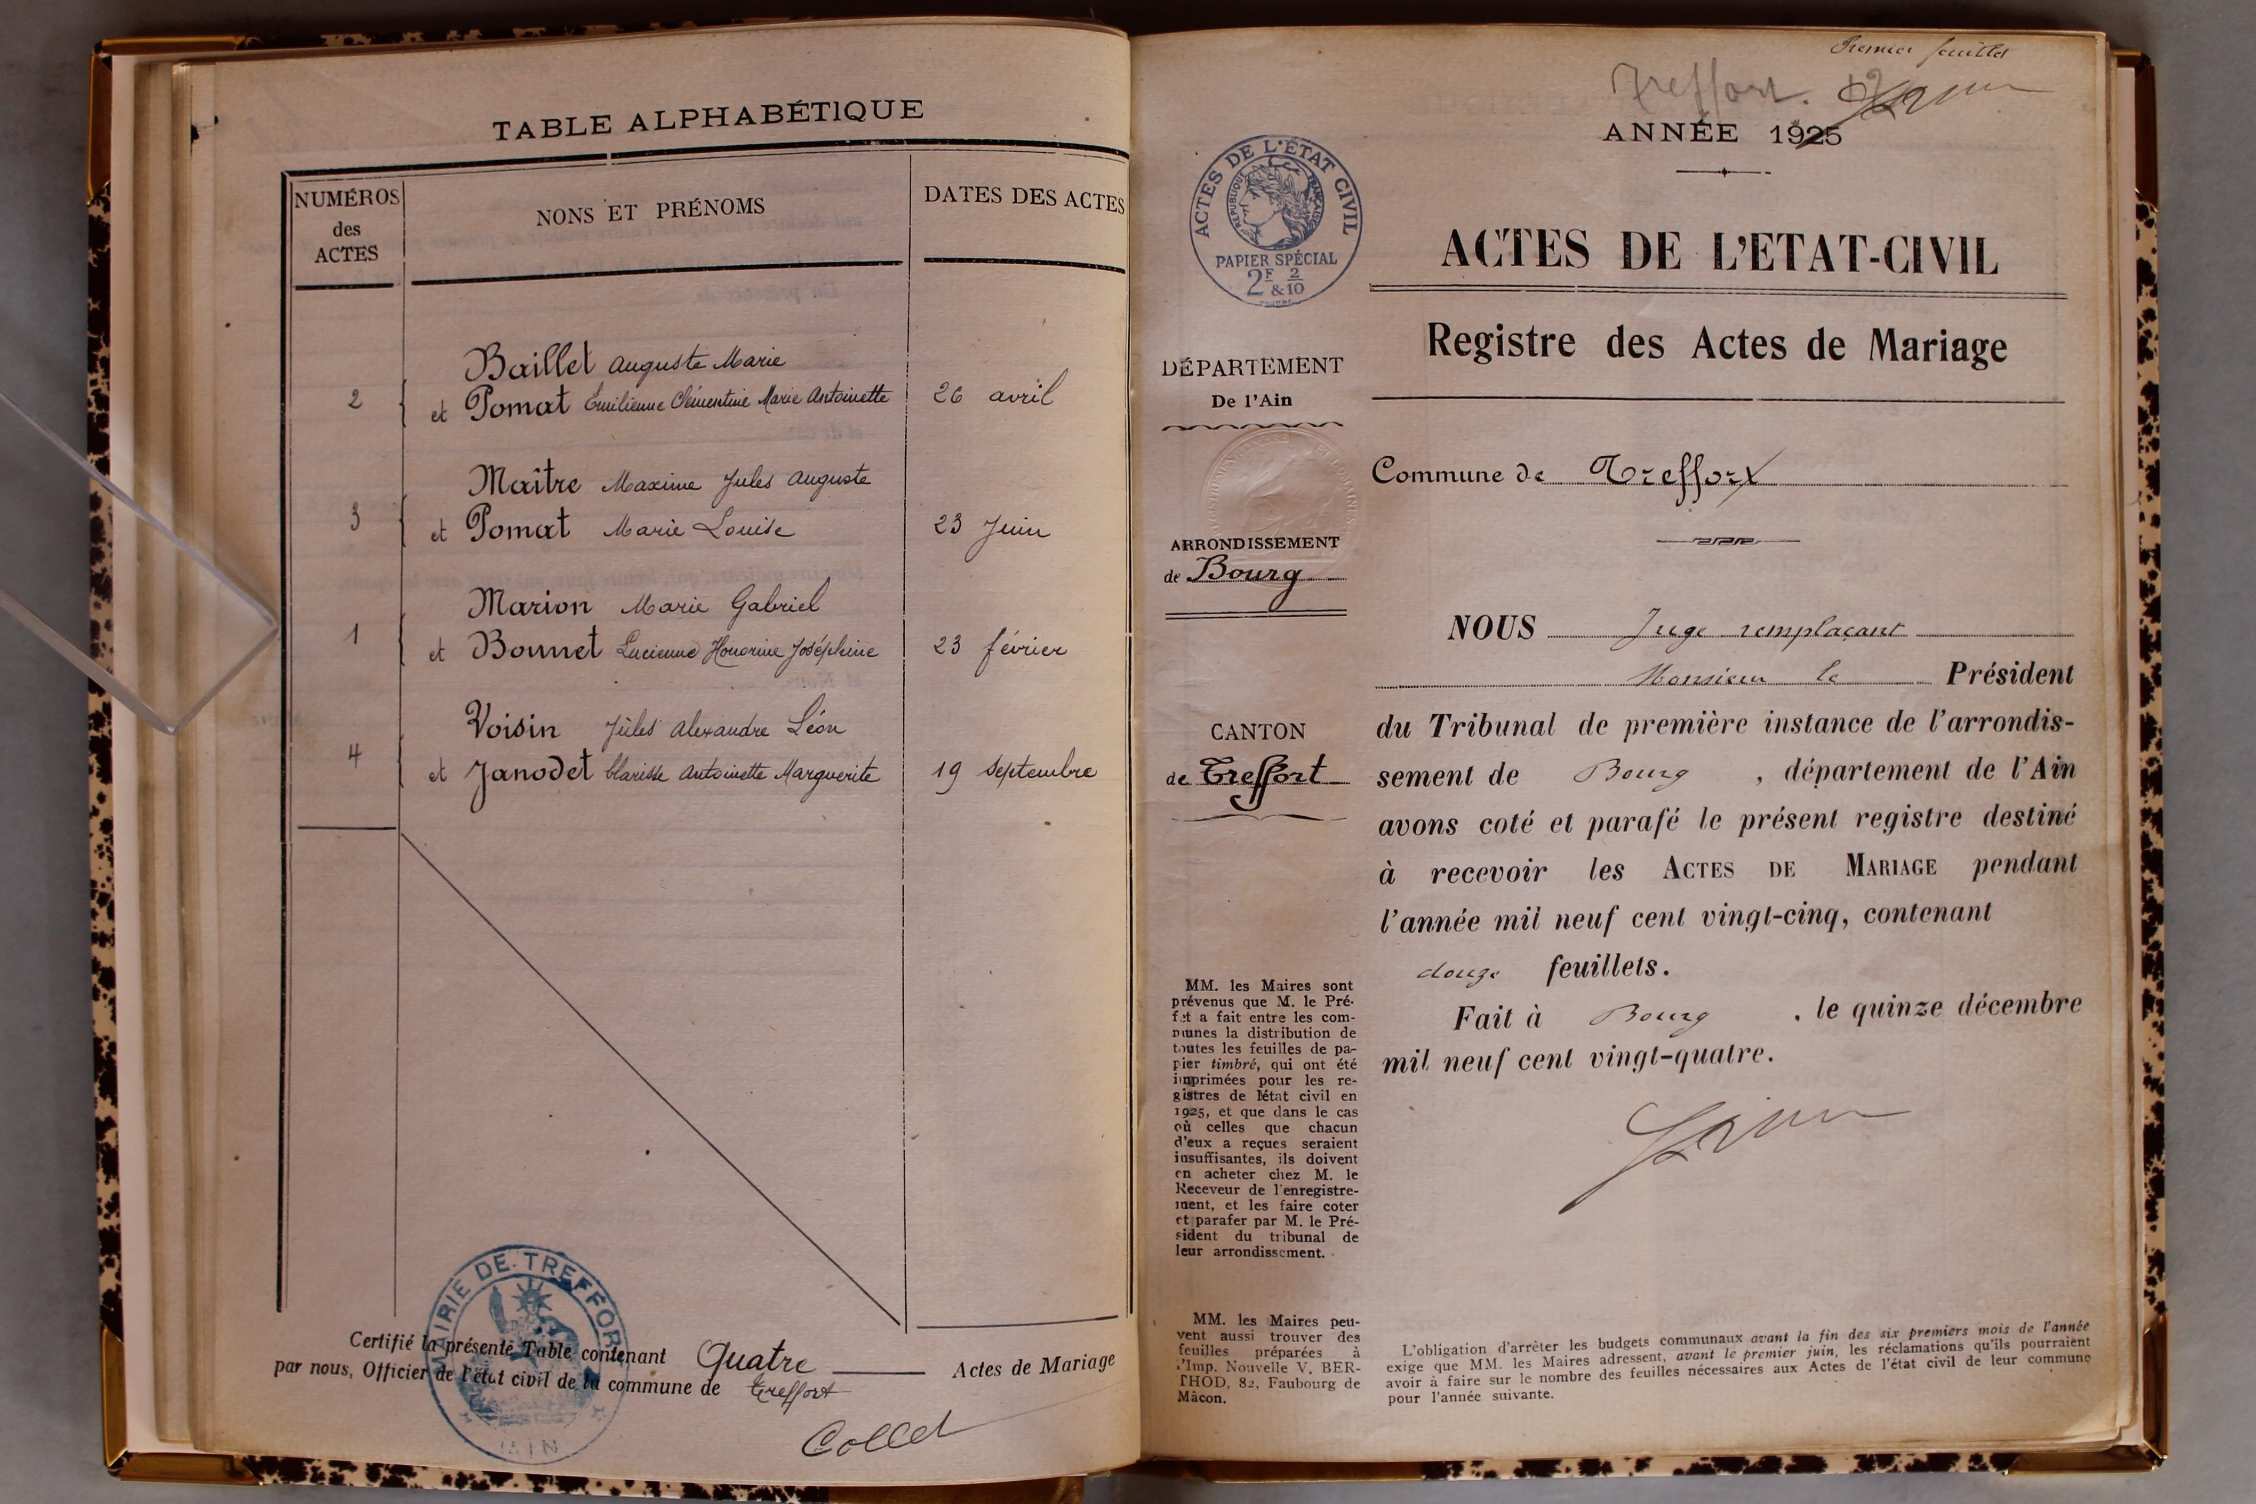 TABLE ALPHABÉTIQUE
NUMÉROS
des
ACTES
NONS ET PRÉNOMS
DATES DES ACTES
Baillet Auguste Marie
2 et Pomat Émilienne Clémentine Marie Antoinette 26 avril
Maître Maxime Jules Auguste
3 et Pomat Marie Louise 23 Juin
Marion Marie Gabriel
1 et Bonnet Lucienne Honorine Joséphine 23 février
Voisin Jules Alexandre Léon
4 et Janodet Clarisse Antoinette Marguerite 19 septembre
Certifié la présente Table contenant Quatre Actes de Mariage
par nous, Officier de l'état civil de la commune de Treffort
Collet
MAIRIE DE TREFFORT
AIN
Premier feuillet
Treffort.
ANNÉE 1925
ACTES DE L'ÉTAT CIVIL
RÉPUBLIQUE FRANÇAISE
PAPIER SPÉCIAL
2F & 2/10
ACTES DE L'ETAT-CIVIL
Registre des Actes de Mariage
DÉPARTEMENT
De l'Ain
Commune de Treffort
ARRONDISSEMENT
de Bourg
CANTON
de Treffort
NOUS Juge remplaçant
Monsieur le Président
du Tribunal de première instance de l'arrondis-
sement de Bourg , département de l'Ain
avons coté et parafé le présent registre destiné
à recevoir les ACTES DE MARIAGE pendant
l'année mil neuf cent vingt-cinq, contenant
douze feuillets.
Fait à Bourg , le quinze décembre
mil neuf cent vingt-quatre.
MM. les Maires sont
prévenus que M. le Pré-
fet a fait entre les com-
munes la distribution de
toutes les feuilles de pa-
pier timbré, qui ont été
imprimées pour les re-
gistres de l'état civil en
1925, et que dans le cas
où celles que chacun
d'eux a reçues seraient
insuffisantes, ils doivent
en acheter chez M. le
Receveur de l'enregistre-
ment, et les faire coter
et parafer par M. le Pré-
sident du tribunal de
leur arrondissement.
MM. les Maires peu-
vent aussi trouver des
feuilles préparées à
l'Imp. Nouvelle V. BER-
THOD, 82, Faubourg de
Mâcon.
L'obligation d'arrêter les budgets communaux avant la fin des six premiers mois de l'année
exige que MM. les Maires adressent, avant le premier juin, les réclamations qu'ils pourraient
avoir à faire sur le nombre des feuilles nécessaires aux Actes de l'état civil de leur commune
pour l'année suivante.